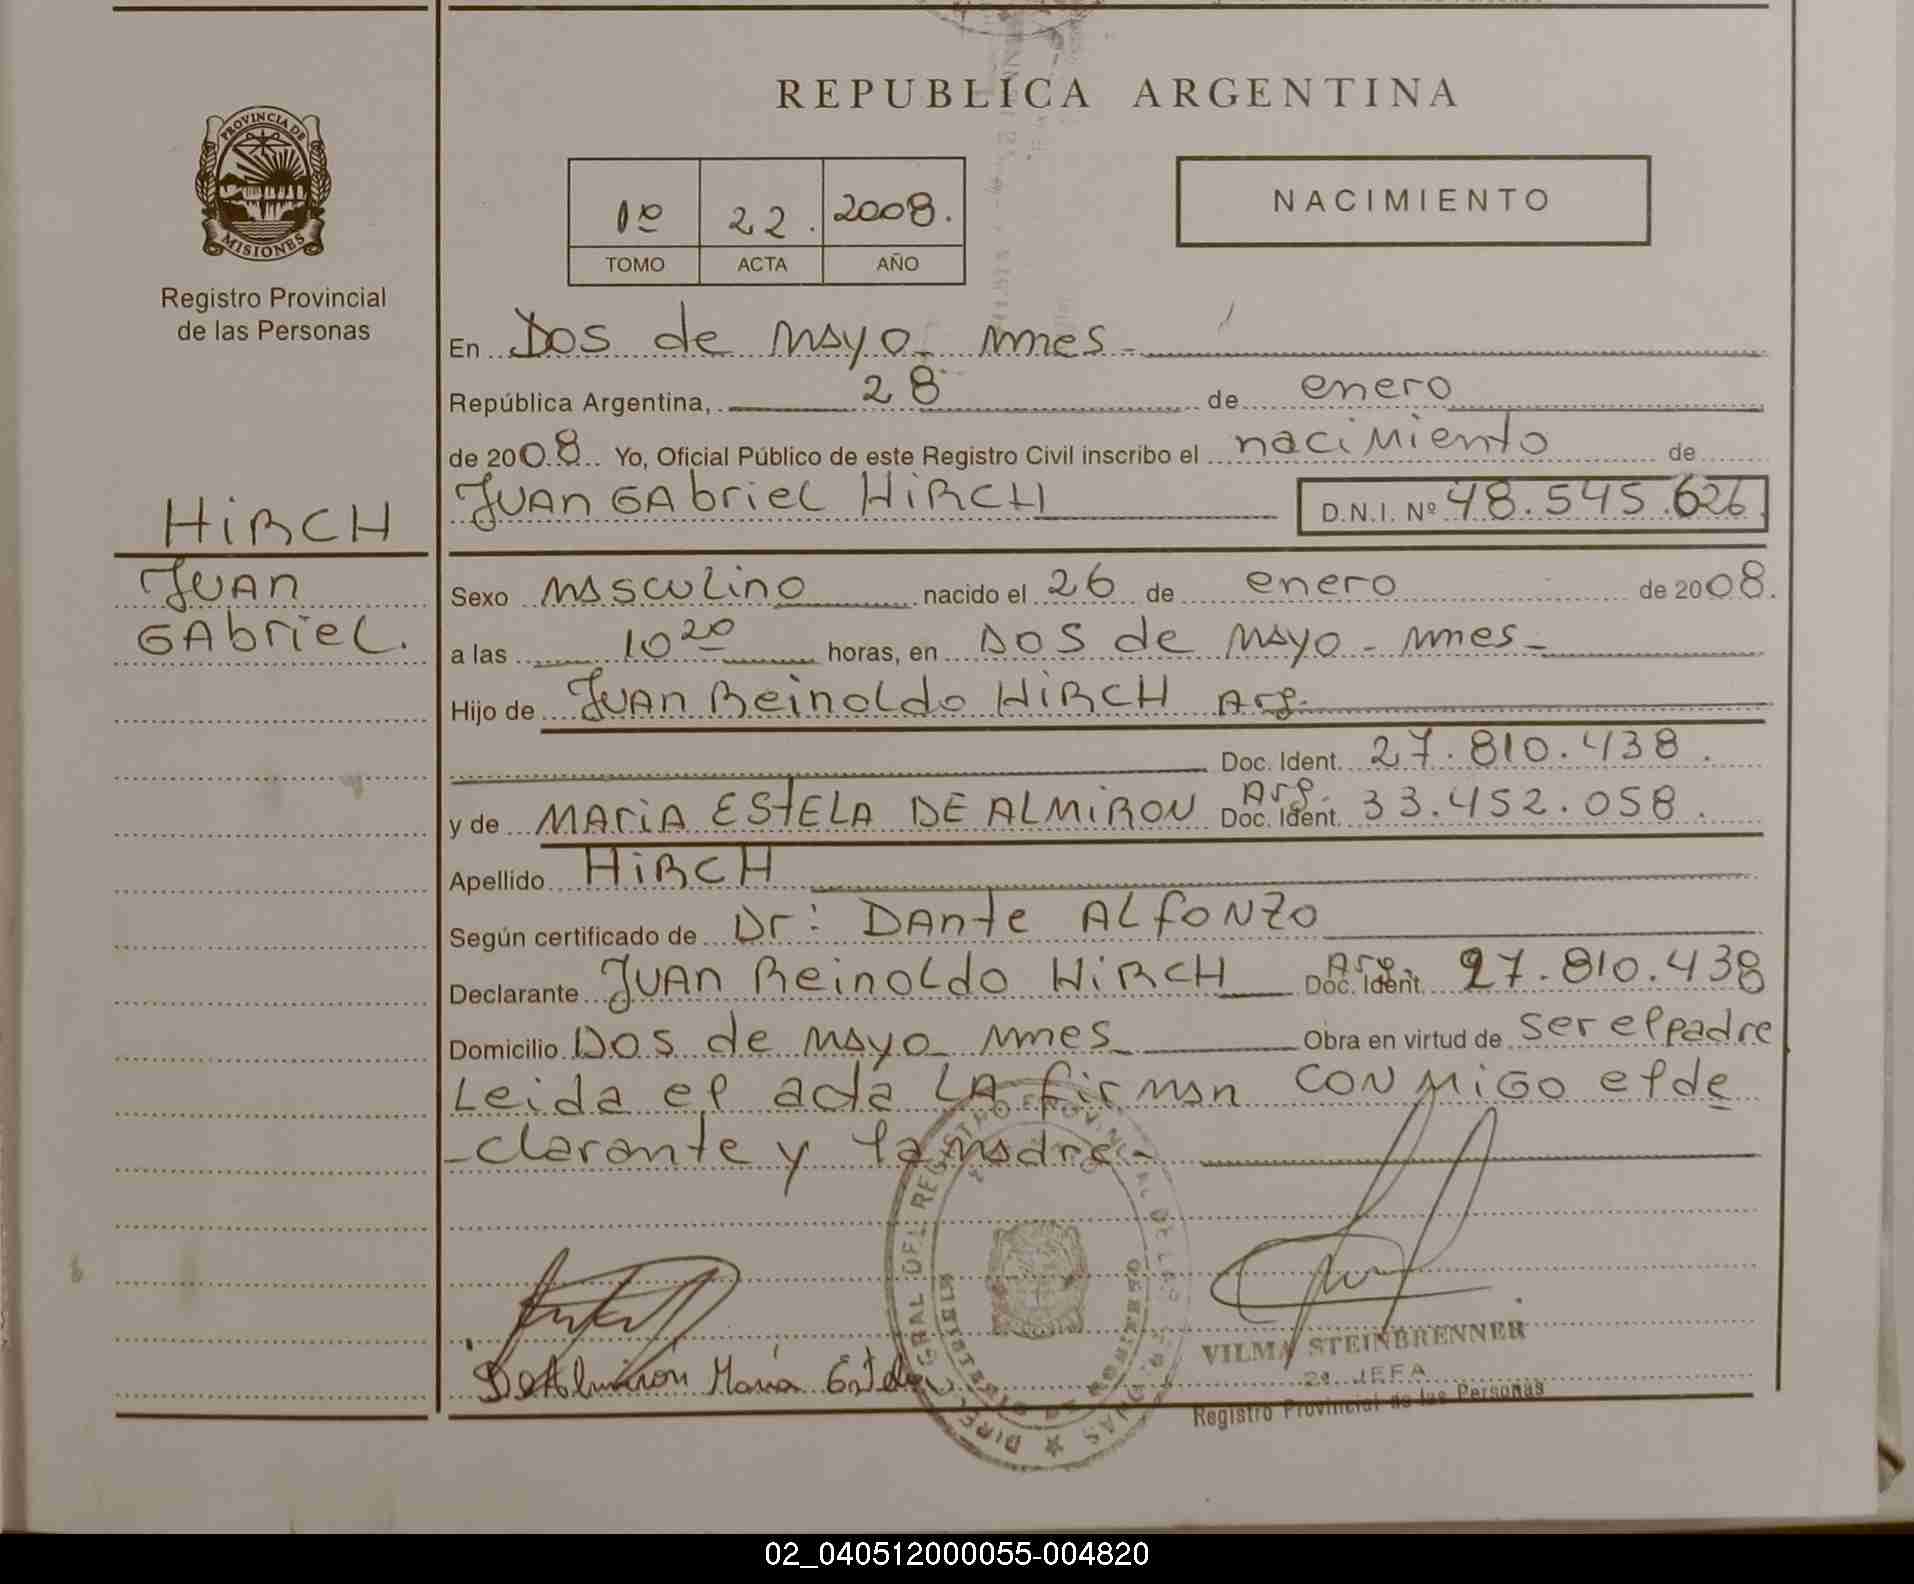 REPUBLICA ARGENTINA
PROVINCIA DE
MISIONES
Registro Provincial
de las Personas
1º 22. 2008.
TOMO ACTA AÑO
NACIMIENTO
En Dos de mayo mnes-
República Argentina, 28 de enero
de 2008. Yo, Oficial Público de este Registro Civil inscribo el nacimiento de
Juan Gabriel HiRCH D.N.I. Nº 48.545.626.
HiRCH
Juan
Gabriel.
Sexo masculino nacido el 26 de enero de 2008.
a las 10 20 horas, en Dos de mayo - mnes-
Hijo de Juan Reinoldo HiRCH Arg.
Doc. Ident. 27.810.438.
y de MARiA ESTELA DE ALMiRON Arg. Doc. Ident. 33.452.058.
Apellido HiRCH
Según certificado de Dr: Dante ALfONZO
Declarante Juan Reinoldo HiRCH Arg. Doc. Ident. 27.810.438
Domicilio Dos de mayo mnes Obra en virtud de ser el padre
Leida el acta LA firman CONMIGO el de
-clarante y la madre-
De Almirón María Estela
VILMA STEINBRENNER
2a. JEFA
Registro Provincial de las Personas
02_040512000055-004820